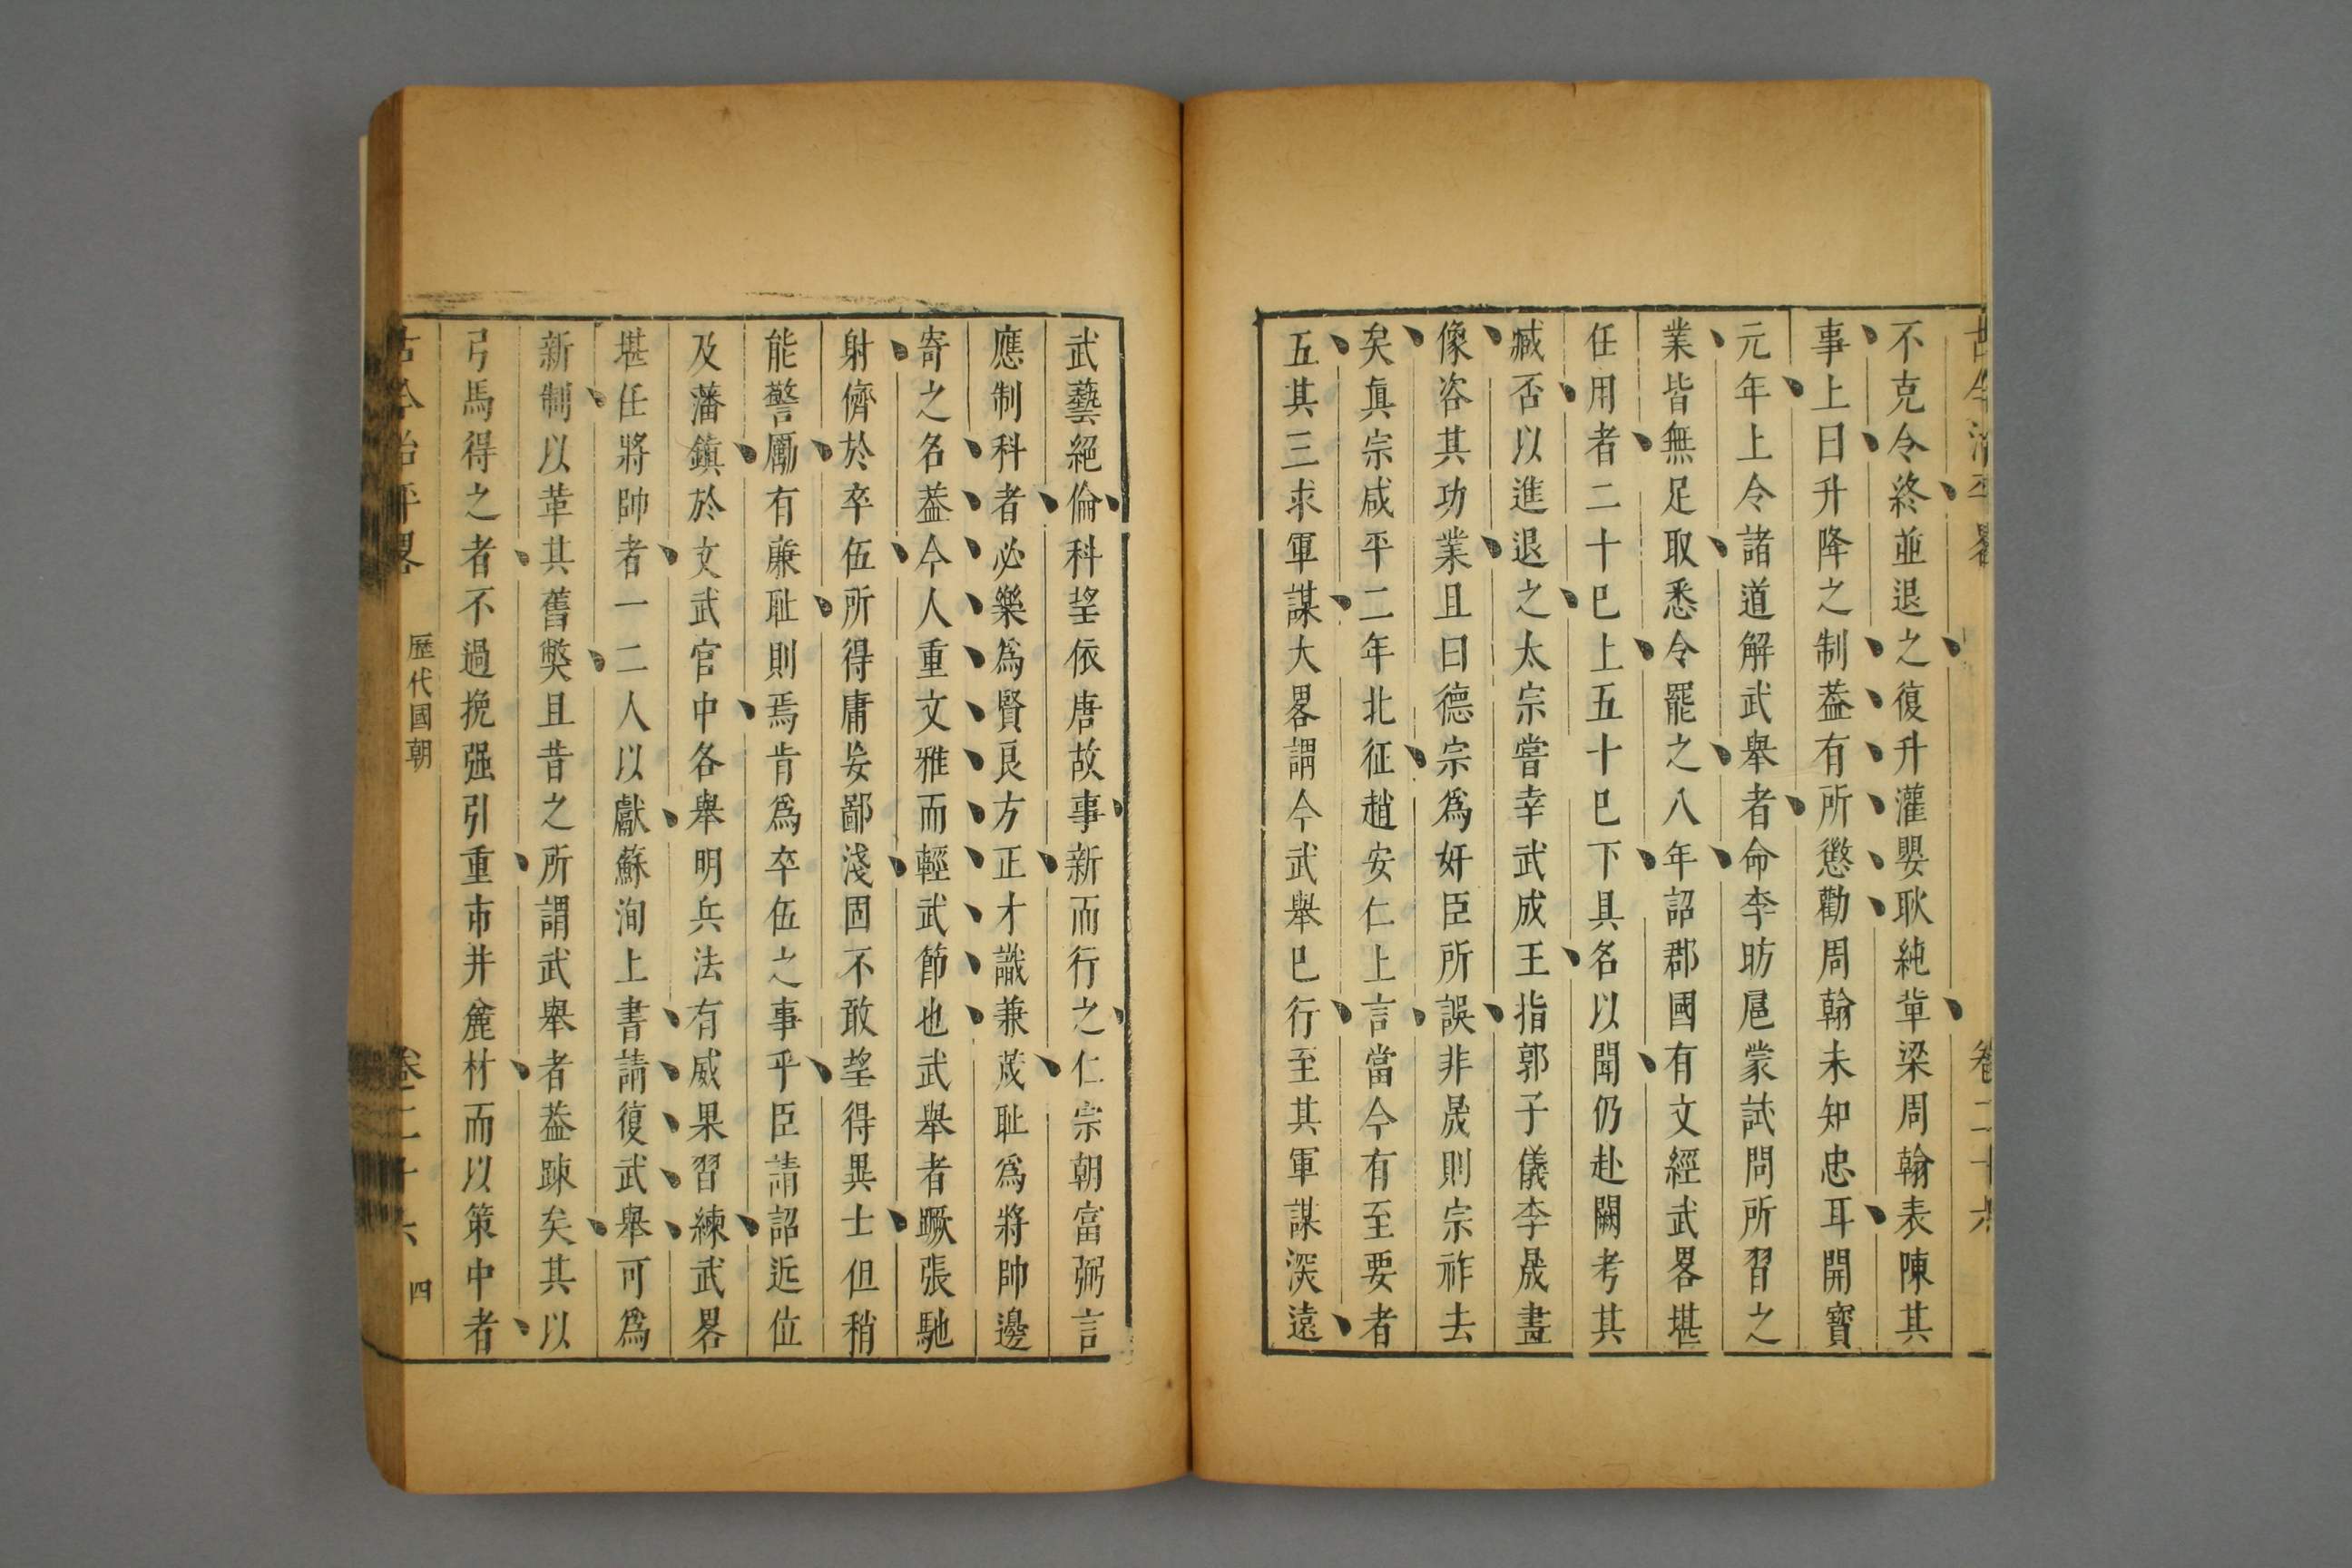 古今治平畧
卷二十六
不克令終並退之復升灌嬰耿純軰梁周翰表陳其
事上曰升降之制葢有所懲勸周翰未知忠耳開寳
元年上令諸道解武舉者命李昉扈蒙試問所習之
業皆無足取悉令罷之八年詔郡國有文經武畧堪
任用者二十巳上五十巳下具名以聞仍赴闕考其
臧否以進退之太宗嘗幸武成王指郭子儀李晟畫
像咨其功業且曰德宗爲奸臣所誤非晟則宗祚去
矣眞宗咸平二年北征趙安仁上言當今有至要者
五其三求軍謀大畧謂今武舉巳行至其軍謀深遠
武藝絕倫科望依唐故事新而行之仁宗朝富弼言
應制科者必樂爲賢良方正才識兼茂耻爲將帥邊
寄之名葢今人重文雅而輕武節也武舉者蹶張馳
射儕於卒伍所得庸妄鄙淺固不敢望得異士但稍
能警勵有亷耻則焉肯爲卒伍之事乎臣請詔近位
及藩鎮於文武官中各舉明兵法有威果習練武畧
堪任將帥者一二人以獻蘇洵上書請復武舉可爲
新制以革其舊獘且昔之所謂武舉者葢踈矣其以
弓馬得之者不過挽强引重市井麄材而以策中者
古今治平畧
歷代國朝
卷二十六
四